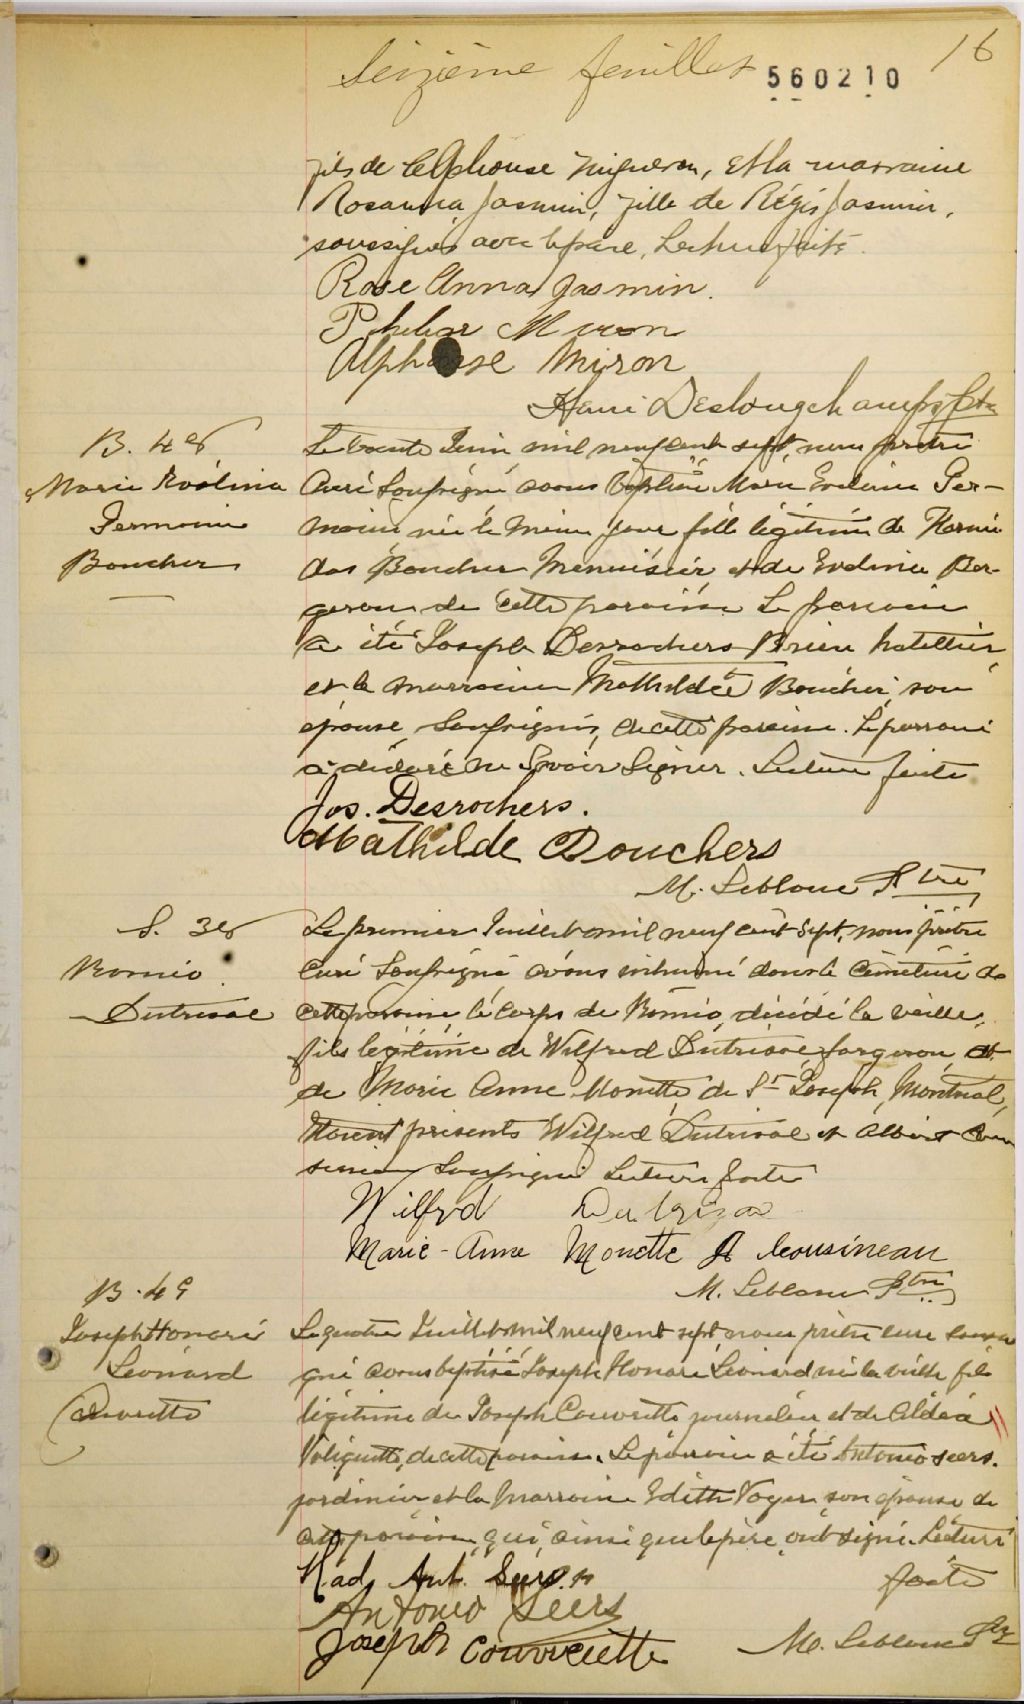 Seizième feuillet 560210 16
fils de Alphonse Migneron, et la marraine
Rosanna Jasmin, fille de Régis Jasmin,
soussignés avec le père, Lecture faite.
Rose Anna Jasmin.
Miron
Alphonse Miron
Henri Deslongchamps Ptre
B. 48
Marie Evélina
Germaine
Boucher
Le trente Juin mil neuf cent sept, nous prêtre
Curé soussigné avons baptisé Marie Evelina Ger-
maine née le même jour fille légitime de Hormi
das Boucher Menuisier et de Evelina Ber-
geron de cette paroisse Le parrain
a été Joseph Desrochers Brien hotellier
et la marraine Mathilde Boucher, son
épouse, soussignés, de cette paroisse. Le parrain
a déclaré ne savoir signer. Lecture faite
Jos. Desrochers.
Mathilde Bouchers
M. Leblanc Ptre
S. 38
Roméo
Dutrisac
Le premier Juillet mil neuf cent sept, nous prêtre
Curé soussigné avons inhumé dans le cimetière de
cette paroisse le corps de Roméo, décédé la veille,
fils légitime de Wilfred Dutrisac forgeron, et
de Marie Anne Monette de St Joseph, Montréal,
Etaient présents Wilfred Dutrisac et Albert Cou
sineau soussignés Lecture faite
Wilfrd Dutrizac
Marie-Anne Monette A Cousineau
M. Leblanc Ptre
B. 49
Joseph Honoré
Léonard
Couvrette
Le quatre Juillet mil neuf cent sept nous prêtre curé soussi
gné avons baptisé Joseph Honoré Léonard né la veille fils
légitime de Joseph Couvrette journalier et de Aldéa
Valiquette, de cette paroisse. Le parrain a été Antonio Seers.
jardinier et la marraine Edith Voyer son épouse de
cette paroisse qui, ainsi que le père ont signé. Lecture
faite
Mad. Ant. Seers
Antonio Seers
Joseph Couvrette
M. Leblanc Ptre